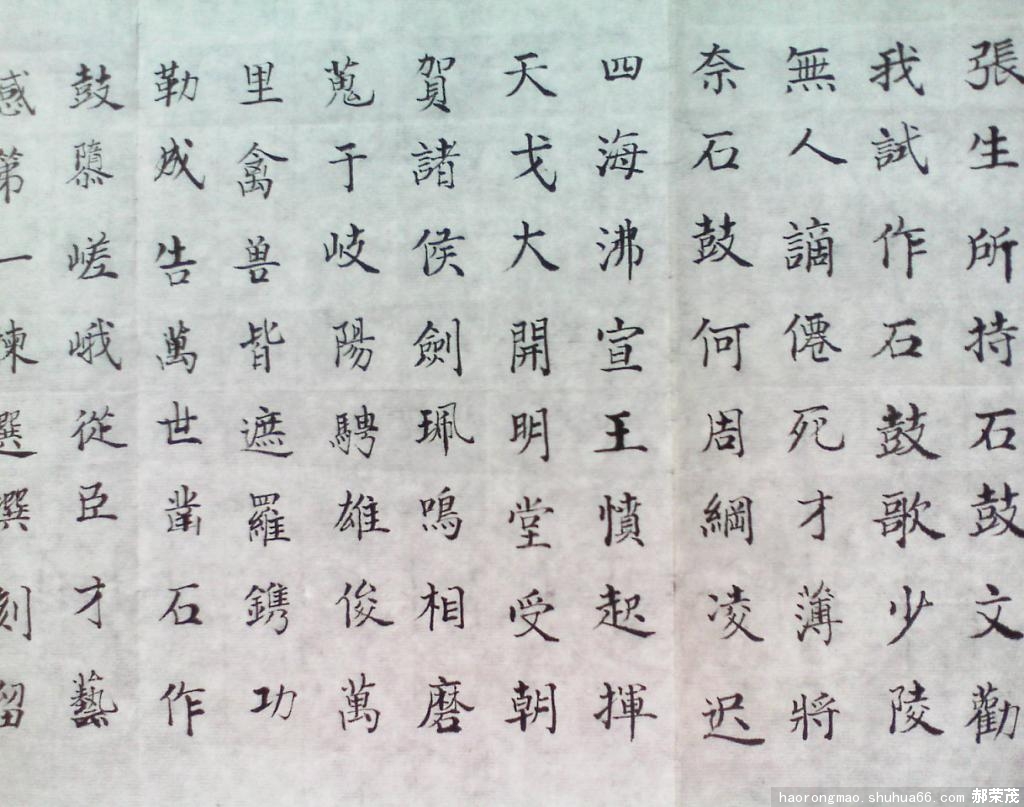 張生所持石鼓文勸
我試作石鼓歌少陵
無人謫僊死才薄將
奈石鼓何周綱凌迟
四海沸宣王憤起揮
天戈大開明堂受朝
賀諸侯劍珮鳴相磨
蒐于岐陽騁雄俊萬
里禽兽皆遮羅鐫功
勒成告萬世凿石作
鼓隳嵯峨從臣才藝
感第一揀選撰刻留
haorongmao.shuhua66.com 郝荣茂